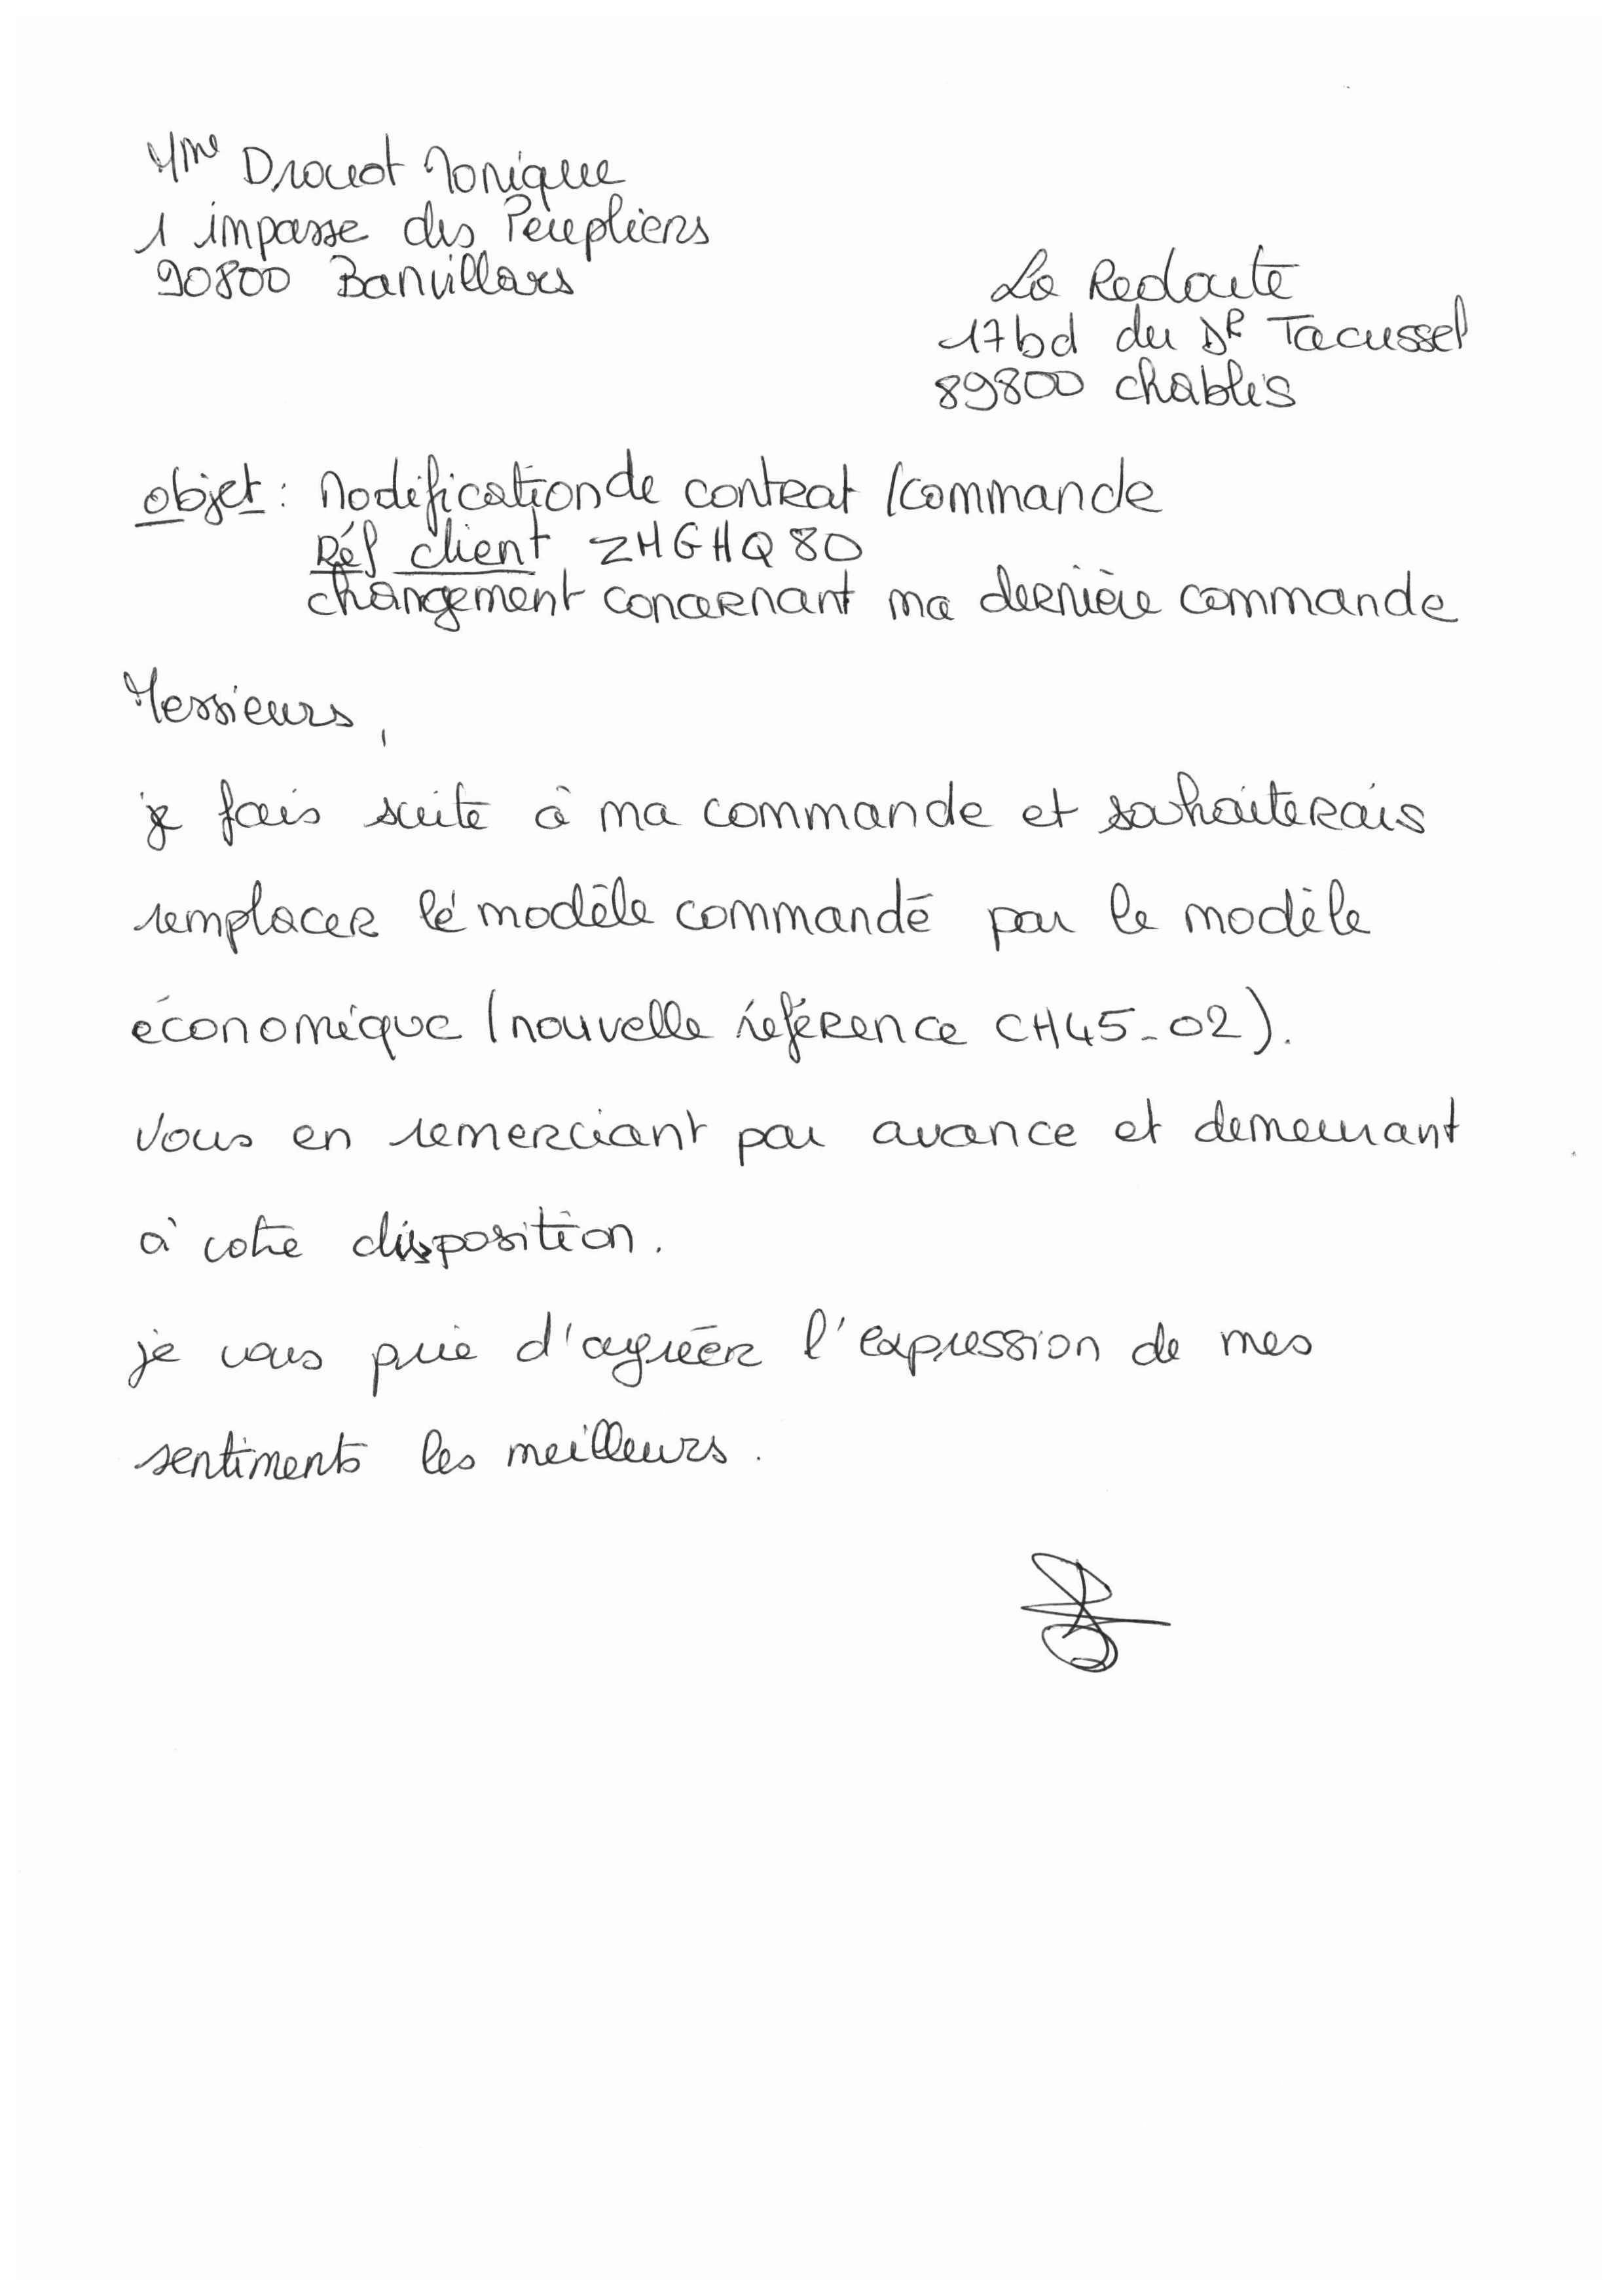 Mme Drouot Monique
1 impasse des Peupliers
90800 Banvillars
La Redoute
17 bd du DR Tacussel
89800 chablis
objet : Modification de contrat / commande
Réf client ZHGHQ80
changement concernant ma dernière commande
Messieurs,
je fais suite à ma commande et souhaiterais
remplacer le modèle commandé par le modèle
économique (nouvelle référence CH45-02).
Vous en remerciant par avance et demeurant
à votre disposition.
je vous prie d'agréer l'expression de mes
sentiments les meilleurs.